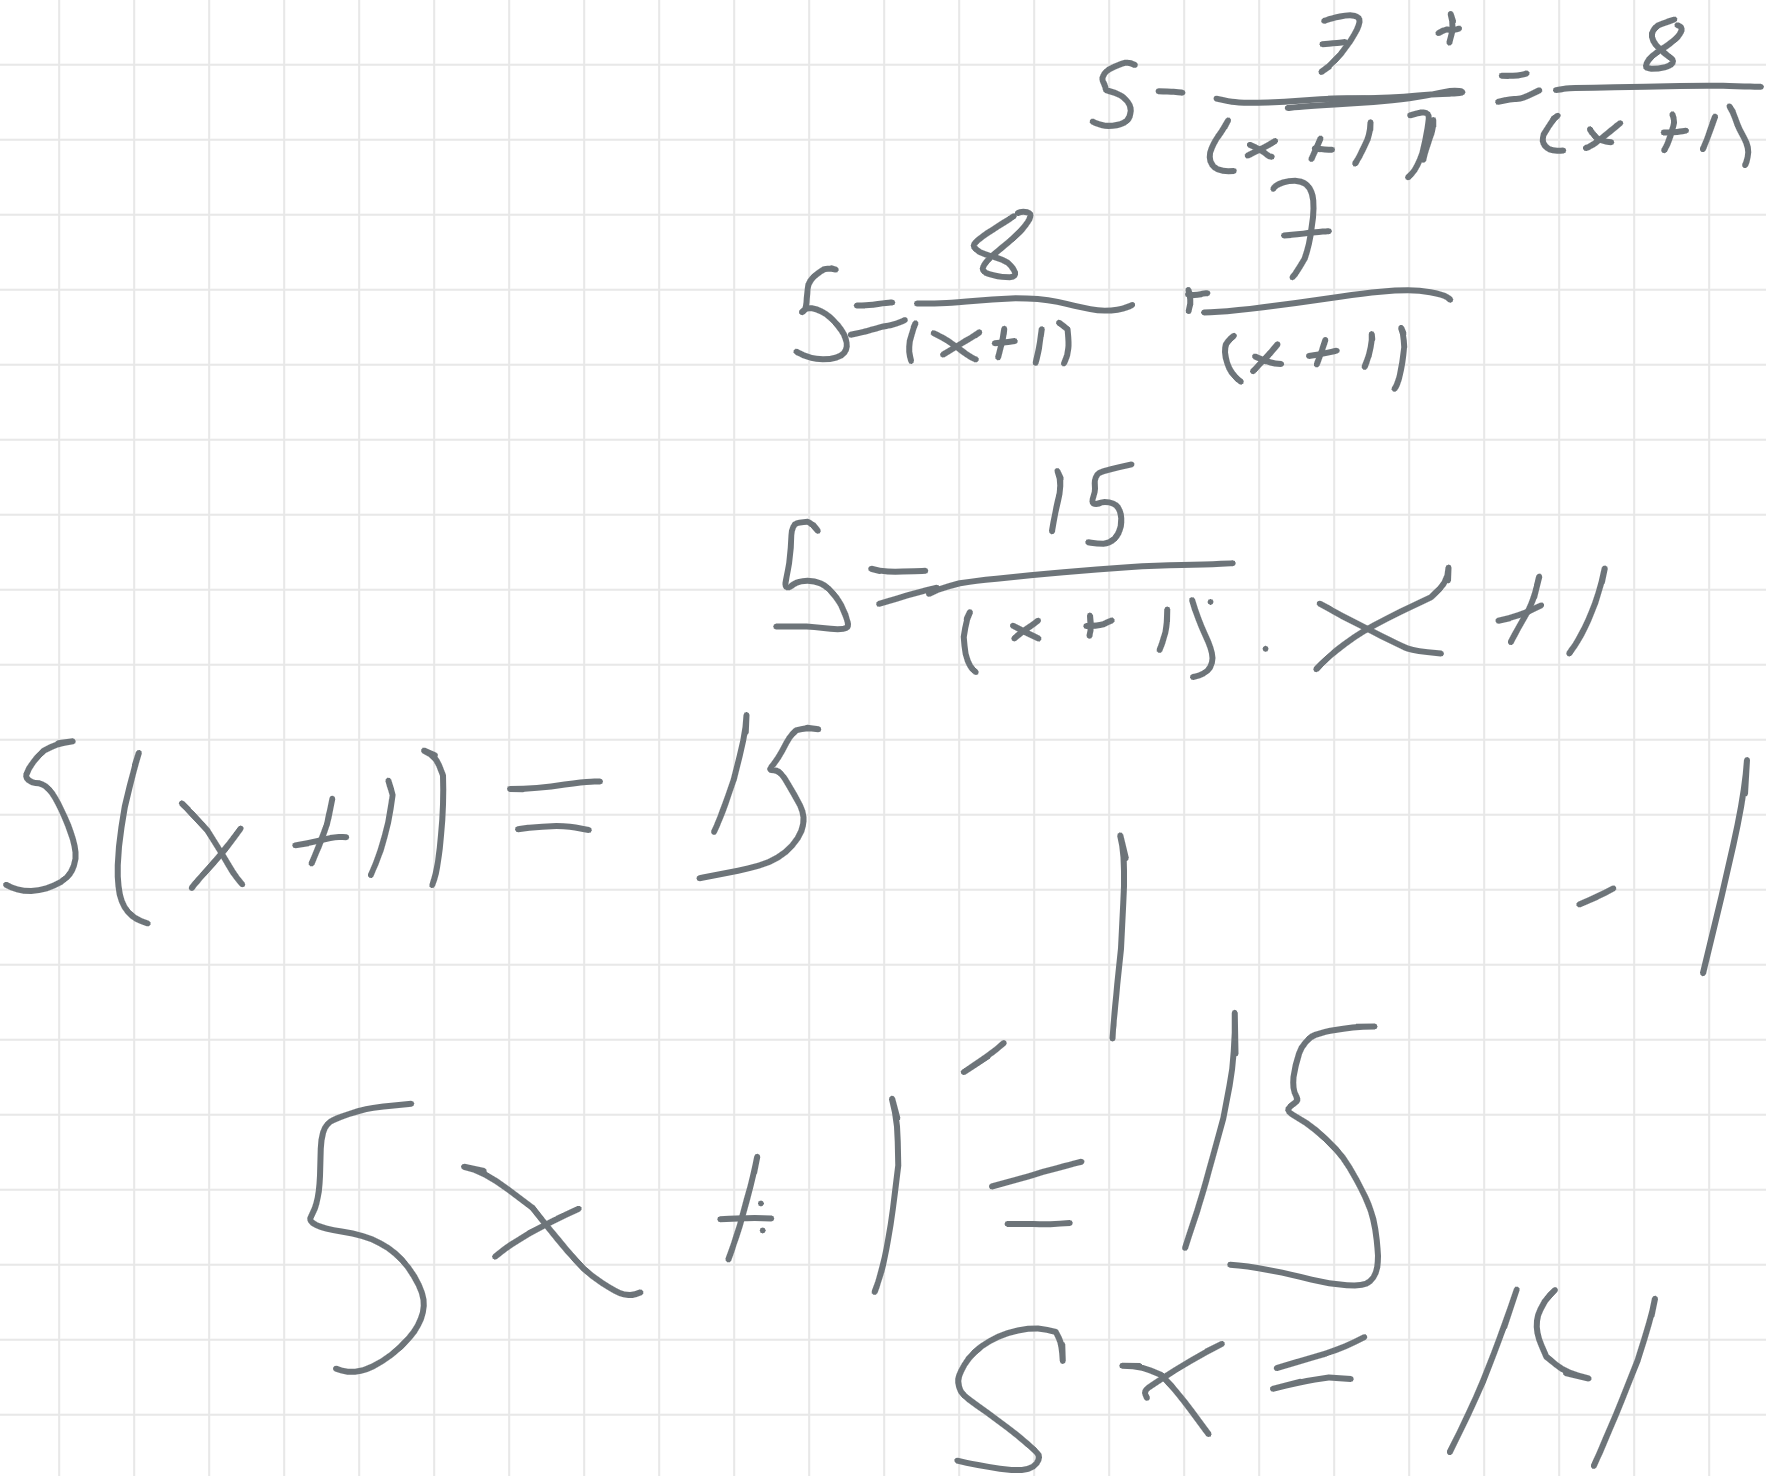 5 - 7/(x+1) + = 8/(x+1)
5 = 8/(x+1) + 7/(x+1)
5 = 15/(x+1) · x+1
5(x+1) = 15
-1 -1
5x+1 = 15
5x = 14